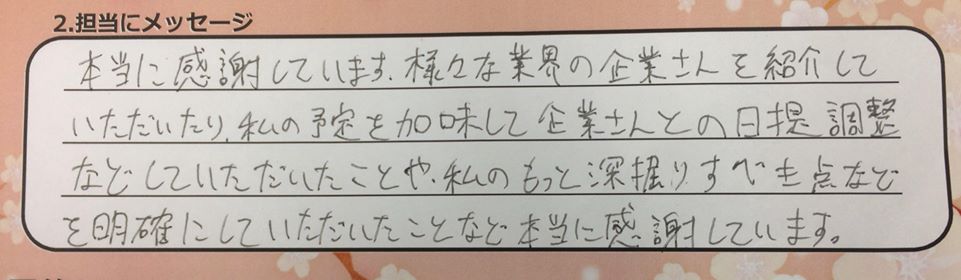 2.担当にメッセージ
本当に感謝しています。様々な業界の企業さんを紹介して
いただいたり、私の予定を加味して企業さんとの日提調整
などしていただいたことや、私のもっと深掘りすべき点など
を明確にしていただいたことなど本当に感謝しています。